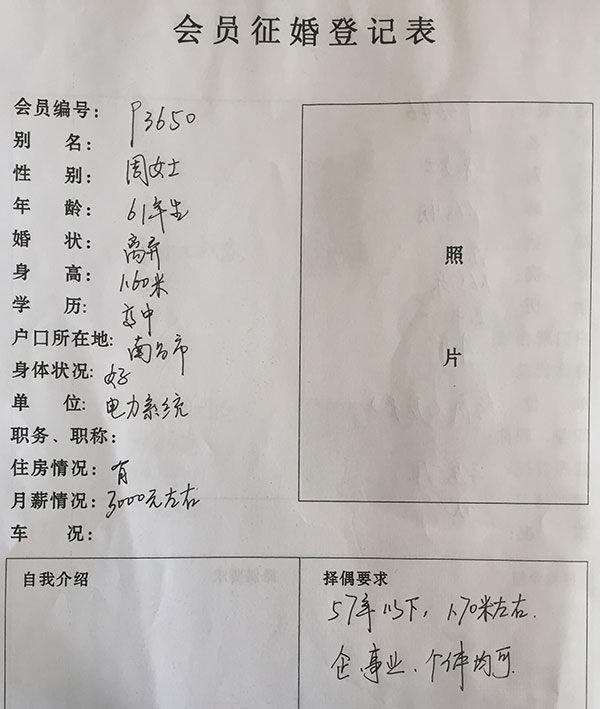 会员征婚登记表
会员编号: P3650
别 名:
性 别: 周女士
年 龄: 61年生
婚 状: 离异
身 高: 1.60米
学 历: 高中
户口所在地: 南昌市
身体状况: 好
单 位: 电力系统
职务、职称:
住房情况: 有
月薪情况: 3000元左右
车 况:
照
片
自我介绍
择偶要求
57年以下, 1.70米左右.
企.事业、个体均可.